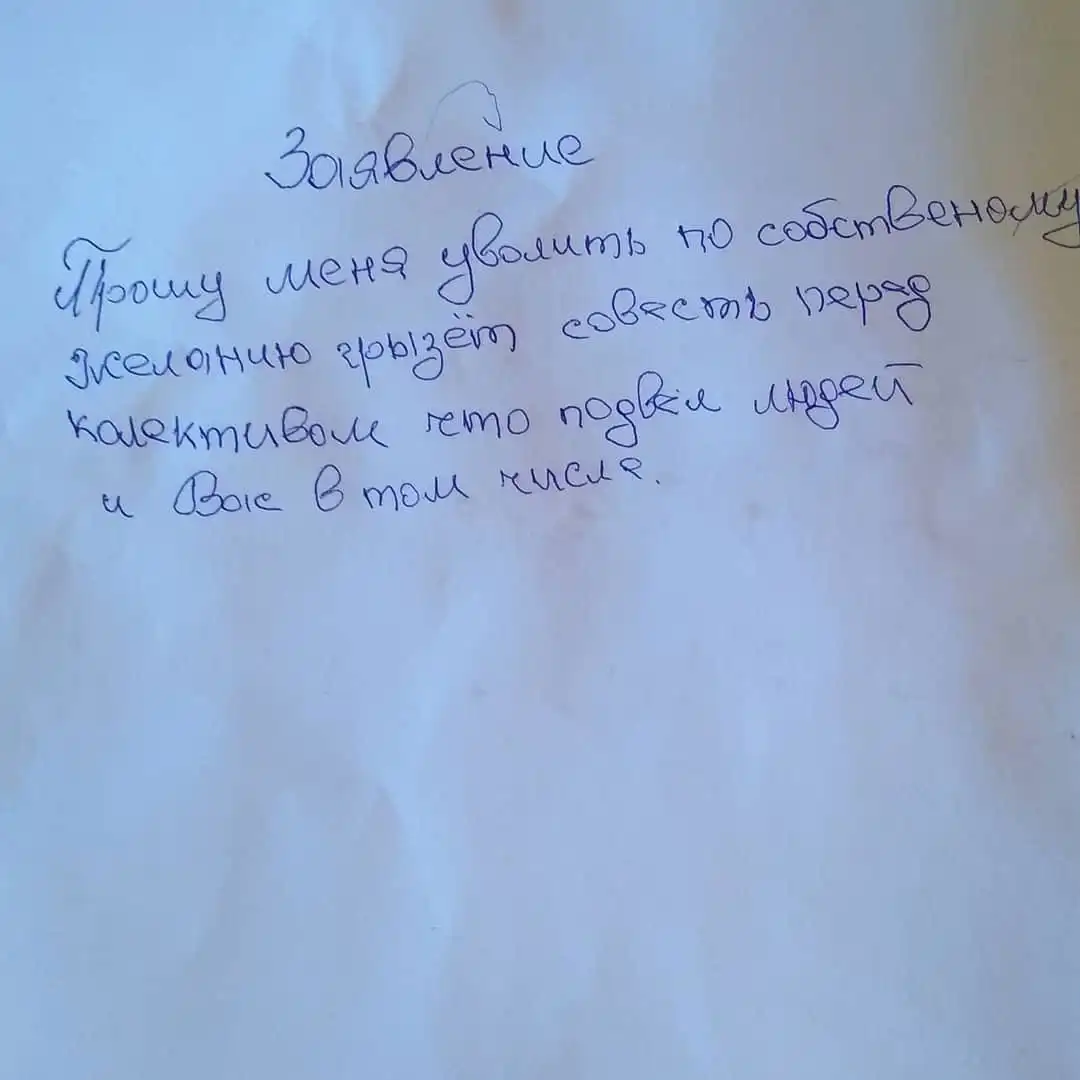 Заявление
Прошу меня уволить по собственому
желанию грызёт совесть перед
колективом что подвёл людей
и Вас в том числе.